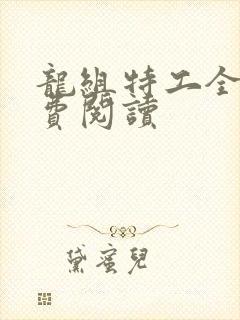 龍組特工全
費閱讀
黛蜜兒